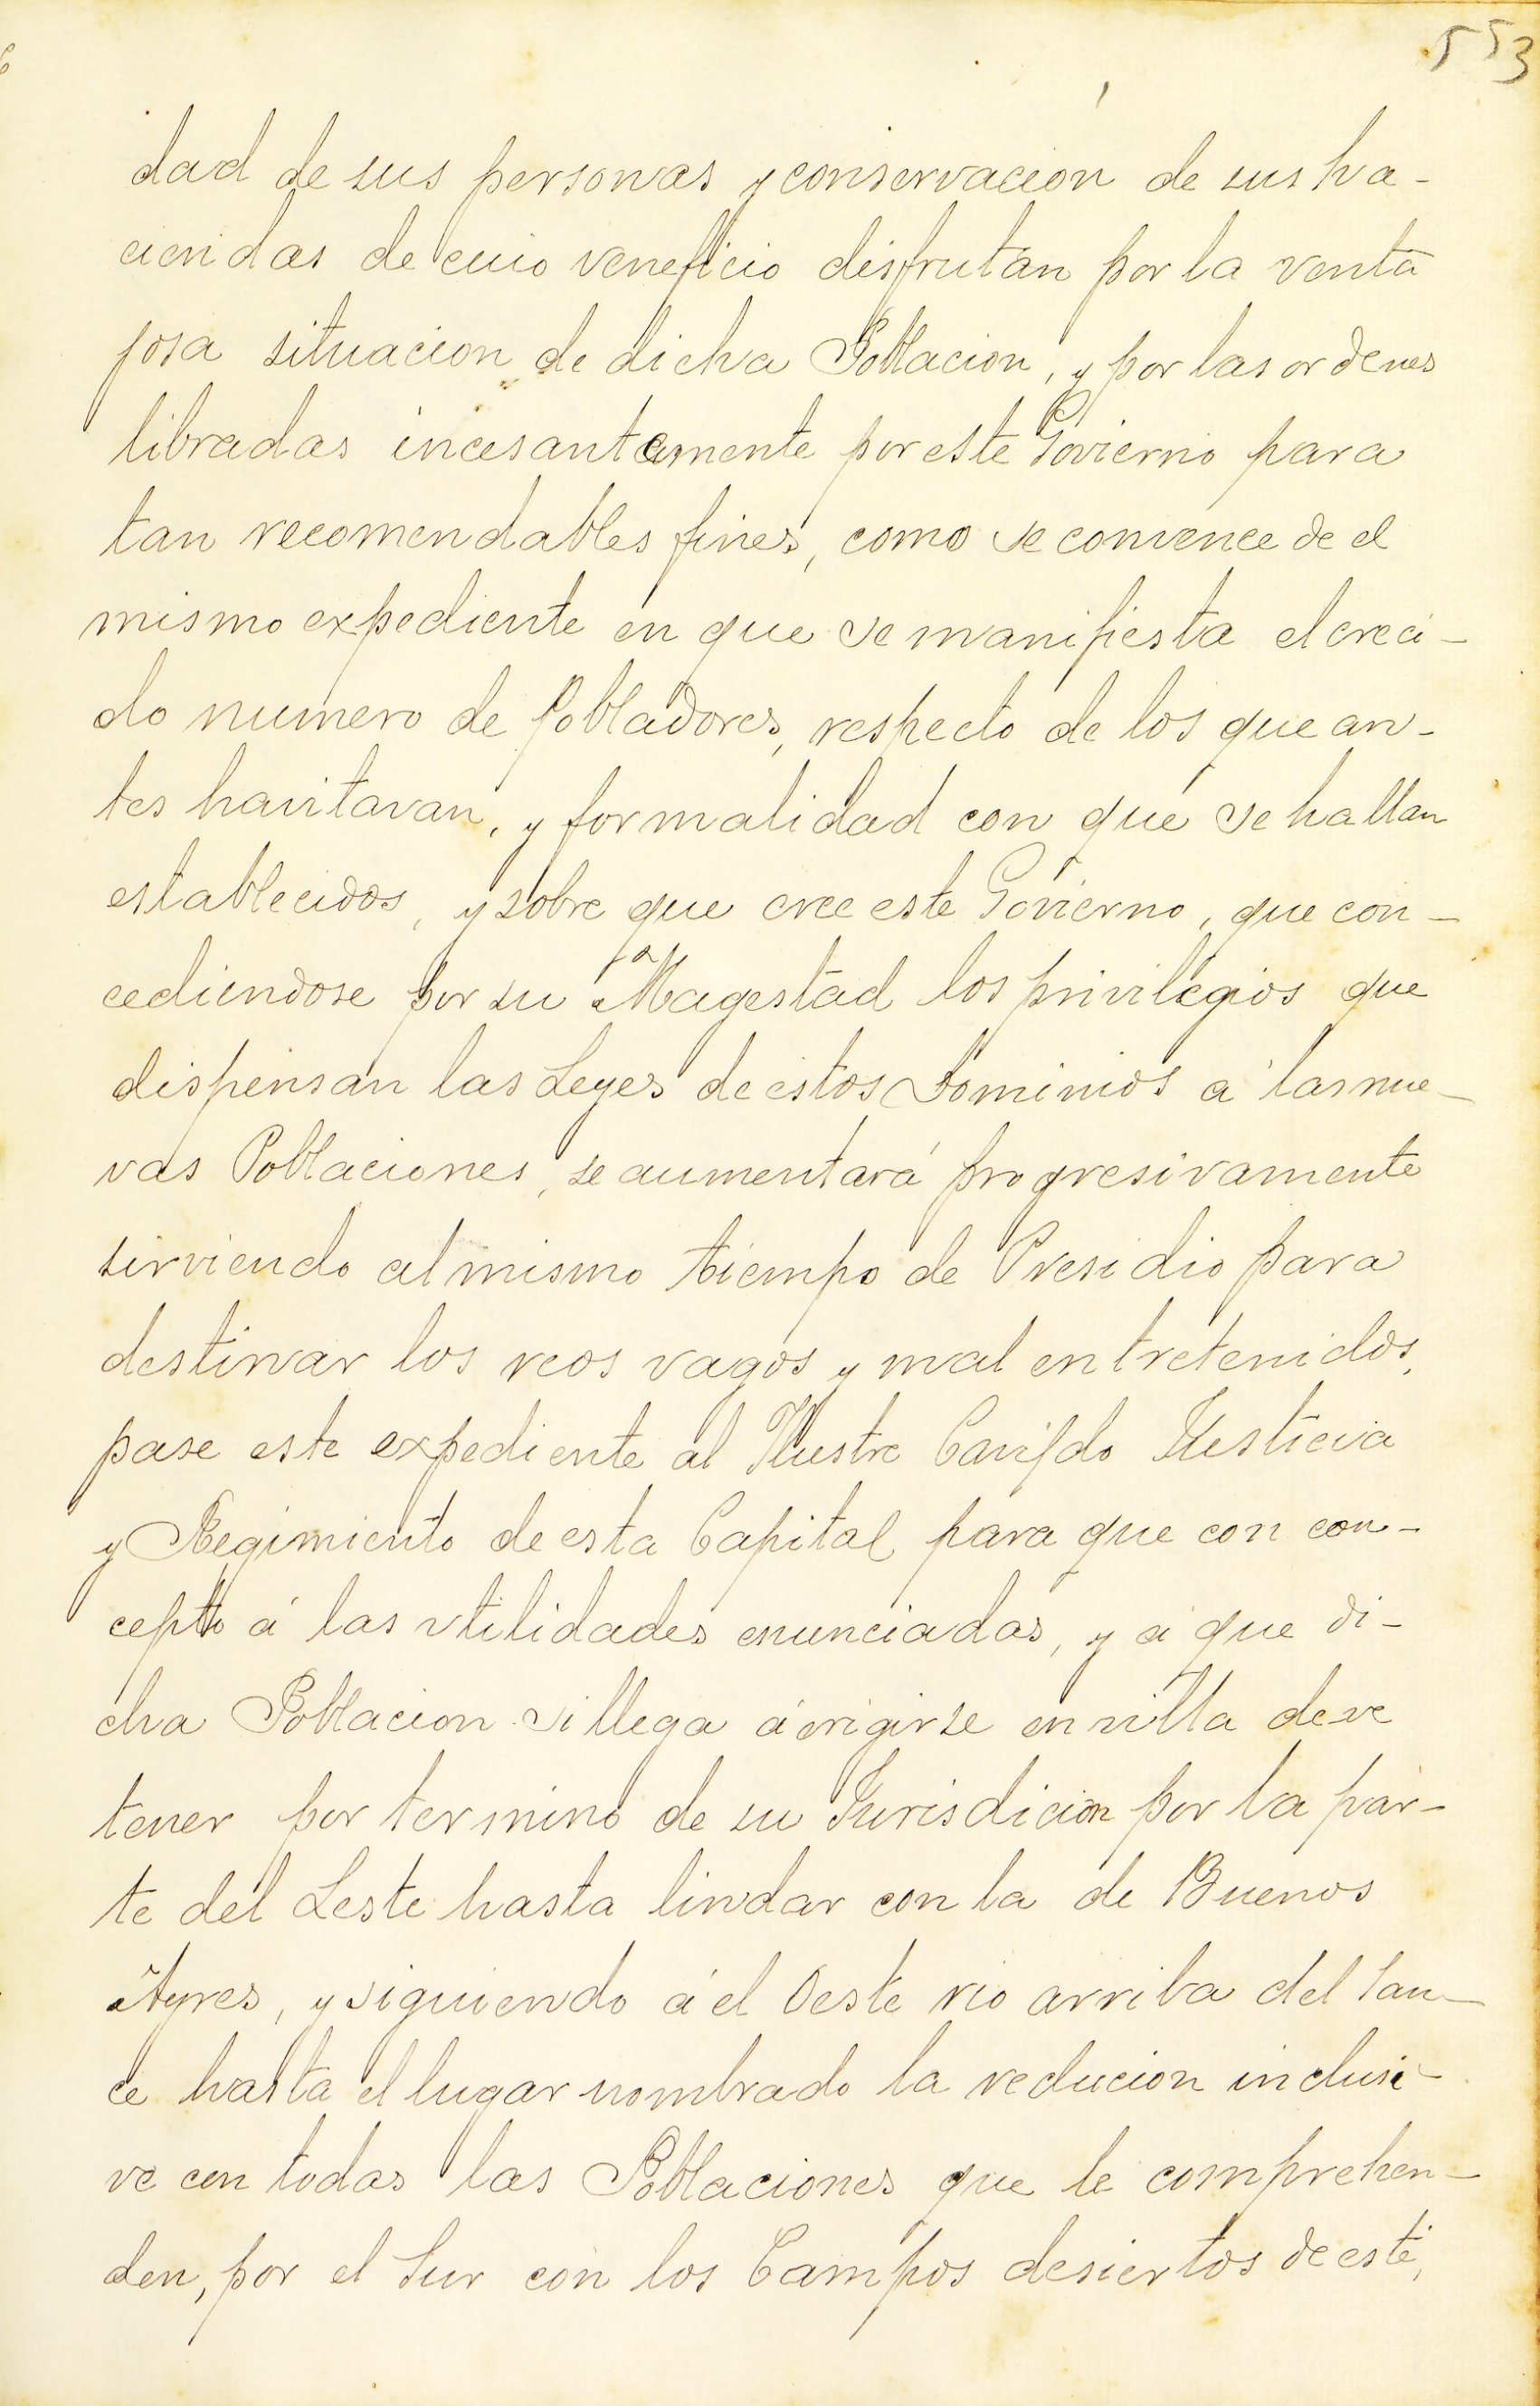 553
dad de sus personas y conservacion de sus ha-
ciendas de cuio veneficio disfrutan por la venta
josa situacion de dicha Poblacion, y por las ordenes
libradas incesantemente por este Govierno para
tan recomendables fines, como se convence de el
mismo expediente en que se manifiesta el creci-
do numero de Pobladores, respecto de los que an-
tes havitavan, y formalidad con que se hallan
establecidos, y sobre que cree este Govierno, que con-
cediendose por su Magestad los privilegios que
dispensan las Leyes de estos Dominios a las nue-
vas Poblaciones, se aumentará progresivamente
sirviendo al mismo tiempo de Presidio para
destinar los reos vagos y mal entretenidos,
pase este expediente al Ilustre Cavildo Justicia
y Regimiento de esta Capital para que con con-
cepto á las utilidades enunciadas, y á que di-
cha Poblacion si llega á erigirse en villa deve
tener por termino de su Jurisdicion por la par-
te del Leste hasta lindar con la de Buenos
Ayres, y siguiendo á el Oeste rio arriba del Sau-
ce hasta el lugar nombrado la reducion inclusi-
ve con todas las Poblaciones que le comprehen-
den, por el Sur con los Campos desiertos de este,